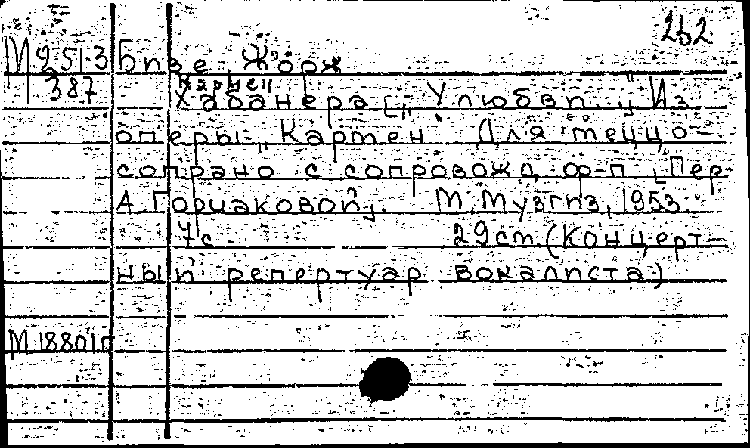 262
М 251-3 Бизе Жорж
387 "Кармен"
Хабанера [„У любви..." Из
оперы „Кармен". Для меццо-
сопрано с сопровожд. ф-п. [Пер.
А. Горчаковой]. М, Музгиз, 1953.
7 с. 29 см. (Концерт-
ный репертуар вокалиста)
М 18801